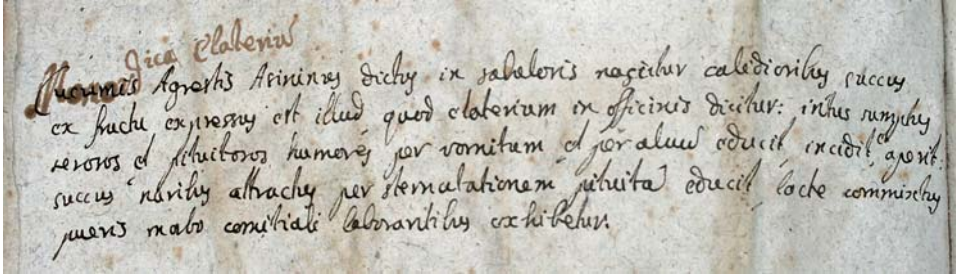 dica Elateriũ
Cucumis Agrestis Asininus dictus in sabulosis nascitur calidioribus succus
ex fructu expressus est illud quod elaterium in officinis dicitur: intus sumptus
serosos et pituitosos humores per vomitum et per aluũ educit, incidit, aperit.
succus naribus attractus per sternutationem pituitã educit lacte commixtus
pueris malo comitiali laborantibus exhibetur.